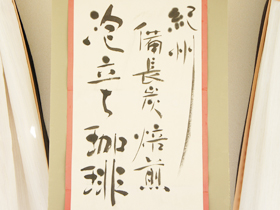 紀州
備長炭焙煎
泡立ち珈琲